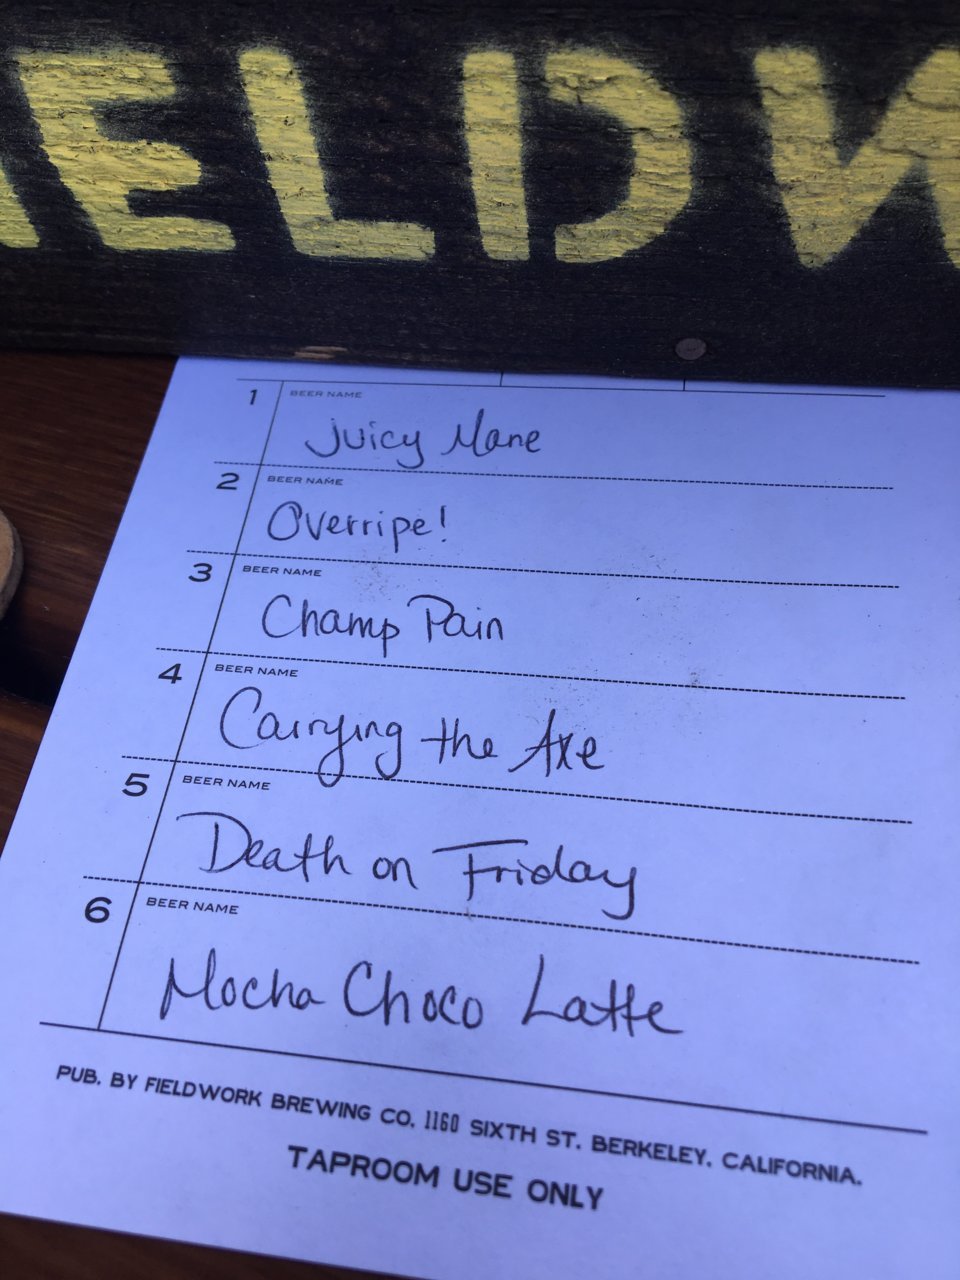 ELDW
1 BEER NAME
Juicy Mane
2 BEER NAME
Overripe!
3 BEER NAME
Champ Pain
4 BEER NAME
Carrying the Axe
5 BEER NAME
Death on Friday
6 BEER NAME
Mocha Choco Latte
PUB. BY FIELDWORK BREWING CO. 1160 SIXTH ST. BERKELEY. CALIFORNIA.
TAPROOM USE ONLY